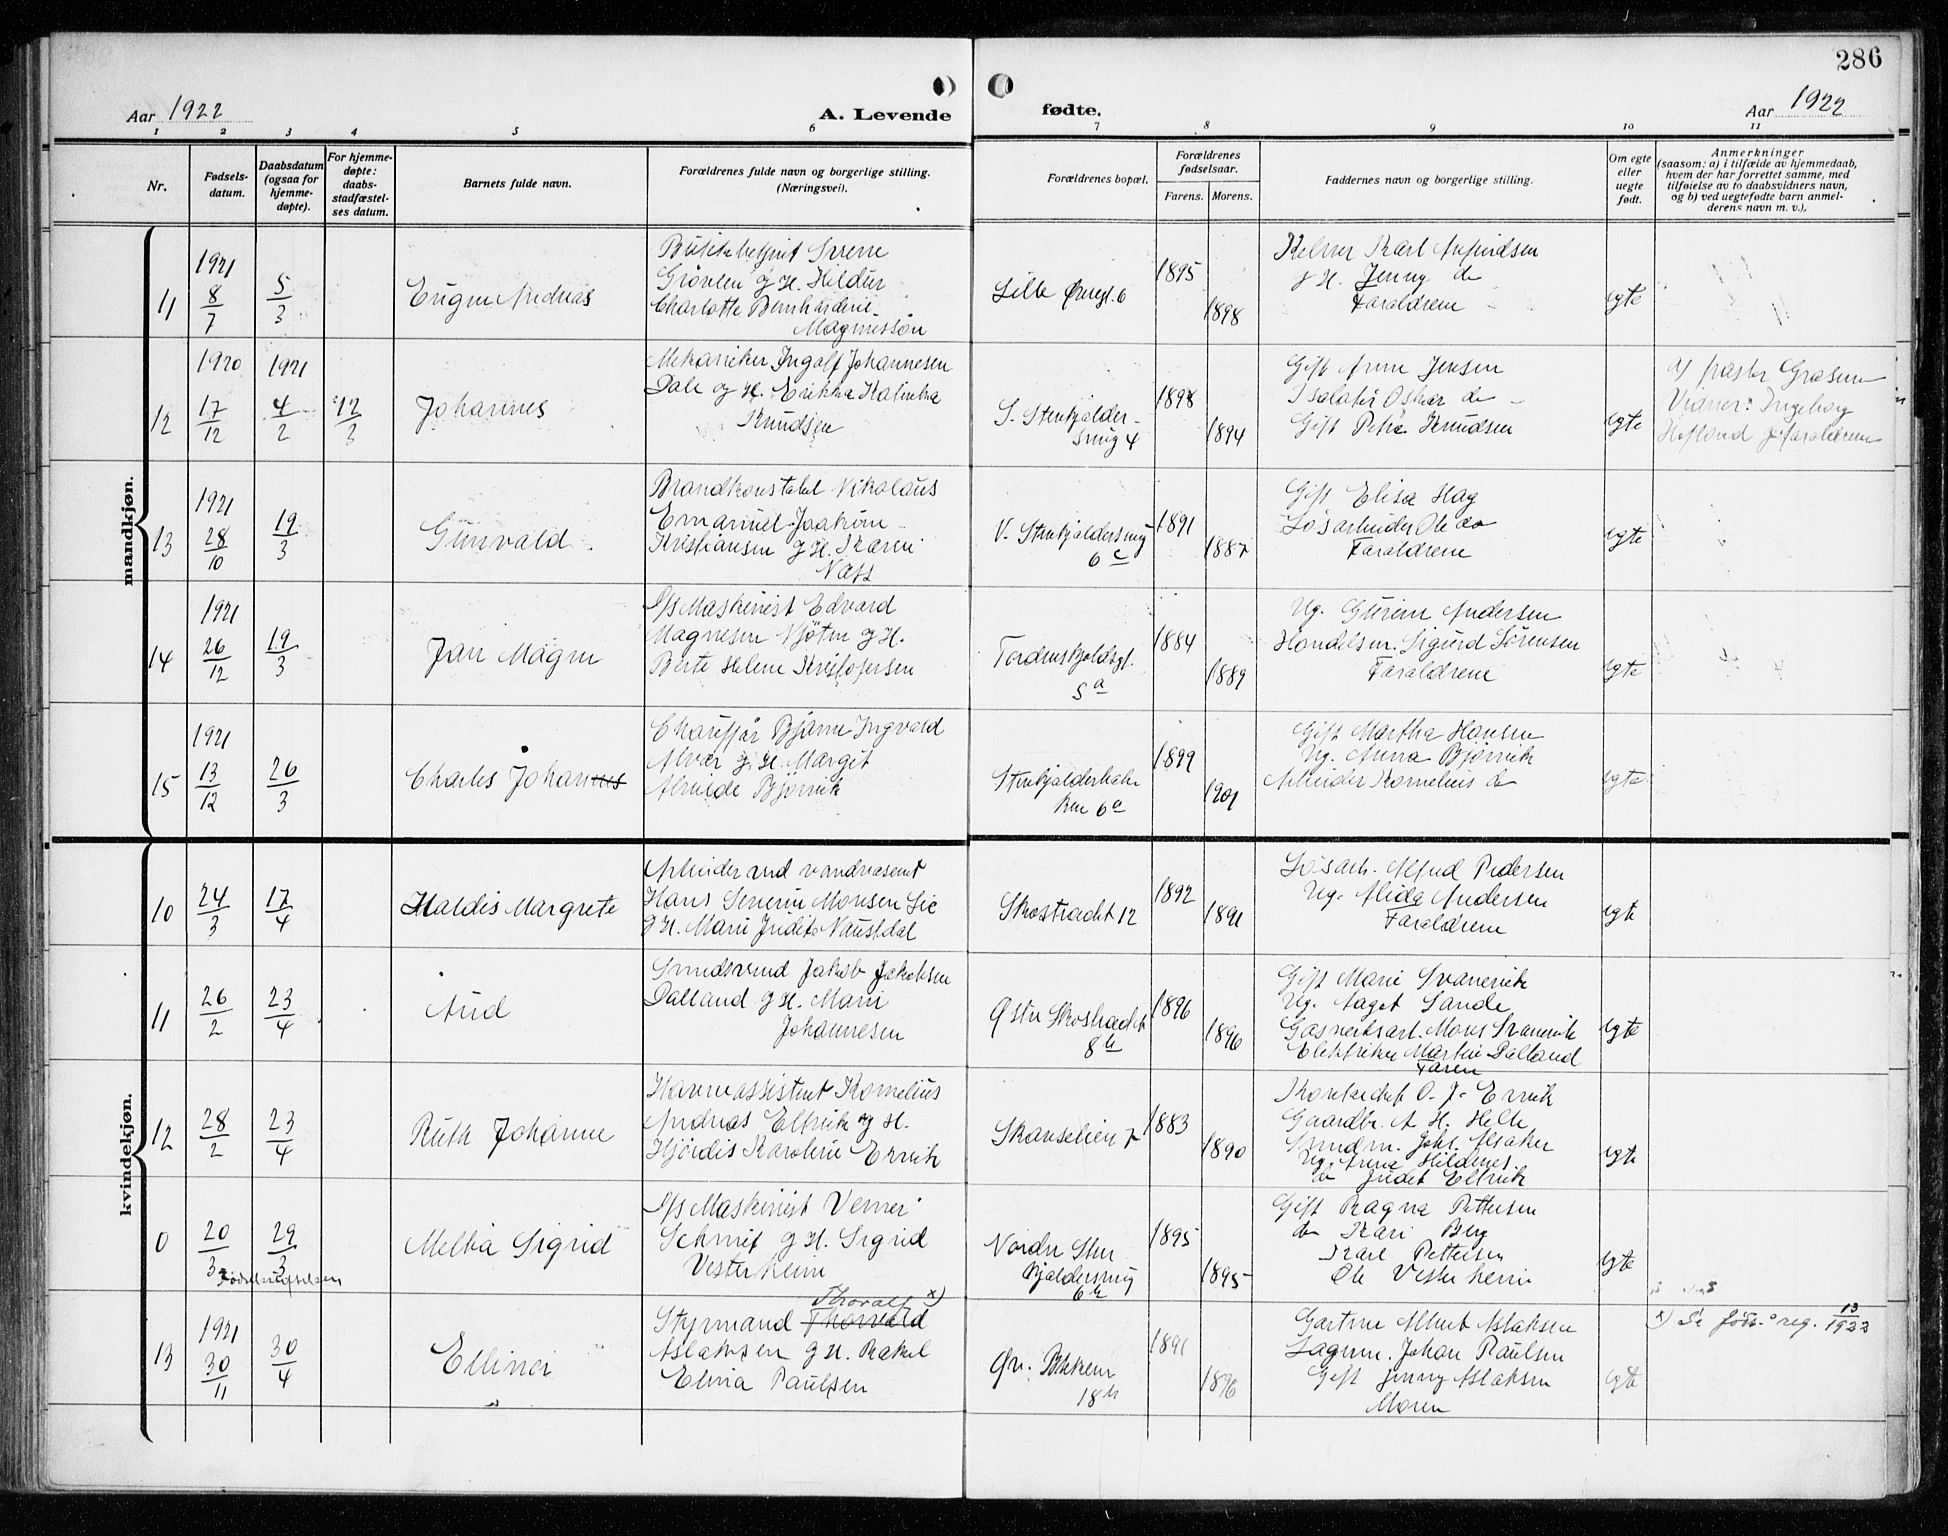 286
Aar 1922
A. Levende
fødte.
Aar 1922
1 2 3 4 5 6 7 8 9 10 11
Nr.
Fødsels-
datum.
Daabsdatum
(ogsaa for
hjemme-
døpte).
For hjemme-
døpte:
daabs-
stadfæstel-
ses datum.
Barnets fulde navn.
Forældrenes fulde navn og borgerlige stilling.
(Næringsvei).
Forældrenes bopæl.
Forældrenes
fødselsaar.
Farens. Morens.
Faddernes navn og borgerlige stilling.
Om egte
eller
uegte
født.
Anmerkninger
(saasom: a) i tilfælde av hjemmedaab,
hvem der har forrettet samme, med
tilføielse av to daabsvidners navn,
og b) ved uegtefødte barn anmel-
derens navn m. v.).
mandkjøn.
11
1921
8/7
5/3
Eugen Andreas
Grönlen g. H. Hildur
Charlotte Bernhardine
Magnussøn
Lille Øvregt. 6
1895
1898
Kelner Karl
g H. Jenny do
Faraldrene
egte
12
1920
17/12
1921
4/2
12/3
Johannes
Mekaniker Ingolf Johannesen
Dale og H. Erikka Kalinka
Knudsen
S. Stenkjelder-
smug 4
1898
1894
Gift Anne Jensen
Isolatør Oskar do
Gift Petra Knudsen
egte
Vidner: Ingeborg
Hofland & faraldrene
13
1921
28/10
19/3
Gunvald
Brandkonstabel Nikolaus
Emanuel Joakim
Kristiansen g H. Karen
Næss
V. Stenkjeldersmug
6 c
1891
1887
Gift Elisa Hag
Løsarbeider Ole do
Faraldrene
egte
14
1921
26/12
19/3
Jan Magne
S/s Maskinist Edvard
Magnesen Njøten g H.
Berte Helene Kristofersen
Tordenskjoldsgt.
5 a
1884
1889
Ug. Gurine Andersen
Handelsm. Sigurd Sørensen
Faraldrene
egte
15
1921
13/12
26/3
Charles Johannes
Chauffør Bjarne Ingvald
Alver g. H. Margit
Alvilde Bjørvik
Stenkjelderbak-
ken 6 a
1899
1901
Gift Martha Hansen
Ug. Anna Bjørvik
Arbeider Kornelius do
egte
kvindekjøn.
10
24/3
17/4
Haldis Margrete
Arbeider ved vandvæsenet
Hans Severin Monsen Lie
g H. Marie Judite Naustdal
Skostrædet 12
1892
1891
Løsarb. Alfred Pedersen
Ug. Alida Andersen
Faraldrene
egte
11
26/2
23/4
Aud
Smedsvend Jakob Jakobsen
Dalland g H. Marie
Johannesen
Østre Skostrædet
8 b
1896
1896
Gift Marie Svanevik
Ug. Aagot Sande
Gasverksarb. Mons Svanevik
Elektriker Martin Dalland
Faren
egte
12
28/2
23/4
Ruth Johanne
Havneassistent Kornelius
Andreas Ellevik og H.
Hjördis Karoline Ervik
Skanselien 7
1883
1890
Kontorchef O. J. Ervik
Gaardbr. A. H. Helle
Smedm. Johs. Alsaker
Ug. Anna Hildenes
do Judit Ellevik
egte
0
20/3
29/3
Fødselsstiftelsen
Melba Sigrid
S/s Maskinist Verner
Schmit g H. Sigrid
Vesterheim
Nordre Sten-
kjeldersmug
6 b
1895
1895
Gift Ragna Pettersen
do Kari Berg
Karl Pettersen
Ole Vesterheim
egte
13
1921
30/11
30/4
Ellinor
Thoralf x)
Styrmand Thorvald
Aslaksen g H. Rakel
Elina Paulsen
Øv. Blekevn
18 b
1891
1896
Gartner Albert Aslaksen
Lagerm. Johan Paulsen
Gift Jenny Aslaksen
Moren
egte
x) Se föds. reg. 13/1922